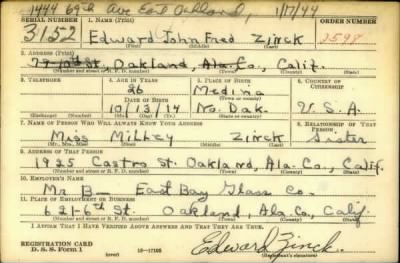 1444 69th Ave East Oakland, 1/17/44
SERIAL NUMBER 1. NAME (Print) ORDER NUMBER
3152 Edward John Fred Zirck 2598
(First) (Middle) (Last)
2. ADDRESS (Print)
St. Oakland, Ala. Co., Calif.
(Number and street or R. F. D. number) (Town) (County) (State)
3. TELEPHONE 4. AGE IN YEARS 5. PLACE OF BIRTH 6. COUNTRY OF CITIZENSHIP
26 Medina
DATE OF BIRTH (Town or county)
10/13/14 No. Dak. U. S. A.
(Exchange) (Number) (Mo.) (Day) (Yr.) (State or country)
7. NAME OF PERSON WHO WILL ALWAYS KNOW YOUR ADDRESS 8. RELATIONSHIP OF THAT PERSON
Miss Zirck Sister
(Mr., Mrs., Miss) (First) (Middle) (Last)
9. ADDRESS OF THAT PERSON
1925 Castro St. Oakland, Ala. Co., Calif.
(Number and street or R. F. D. number) (Town) (County) (State)
10. EMPLOYER'S NAME
Mr B— East Bay Glass Co.
11. PLACE OF EMPLOYMENT OR BUSINESS
621-6th St. Oakland, Ala Co, Calif.
(Number and street or R. F. D. number) (Town) (County) (State)
I AFFIRM THAT I HAVE VERIFIED ABOVE ANSWERS AND THAT THEY ARE TRUE.
REGISTRATION CARD
D. S. S. Form 1 16-17105 Edward Zirck
(Registrant's signature)